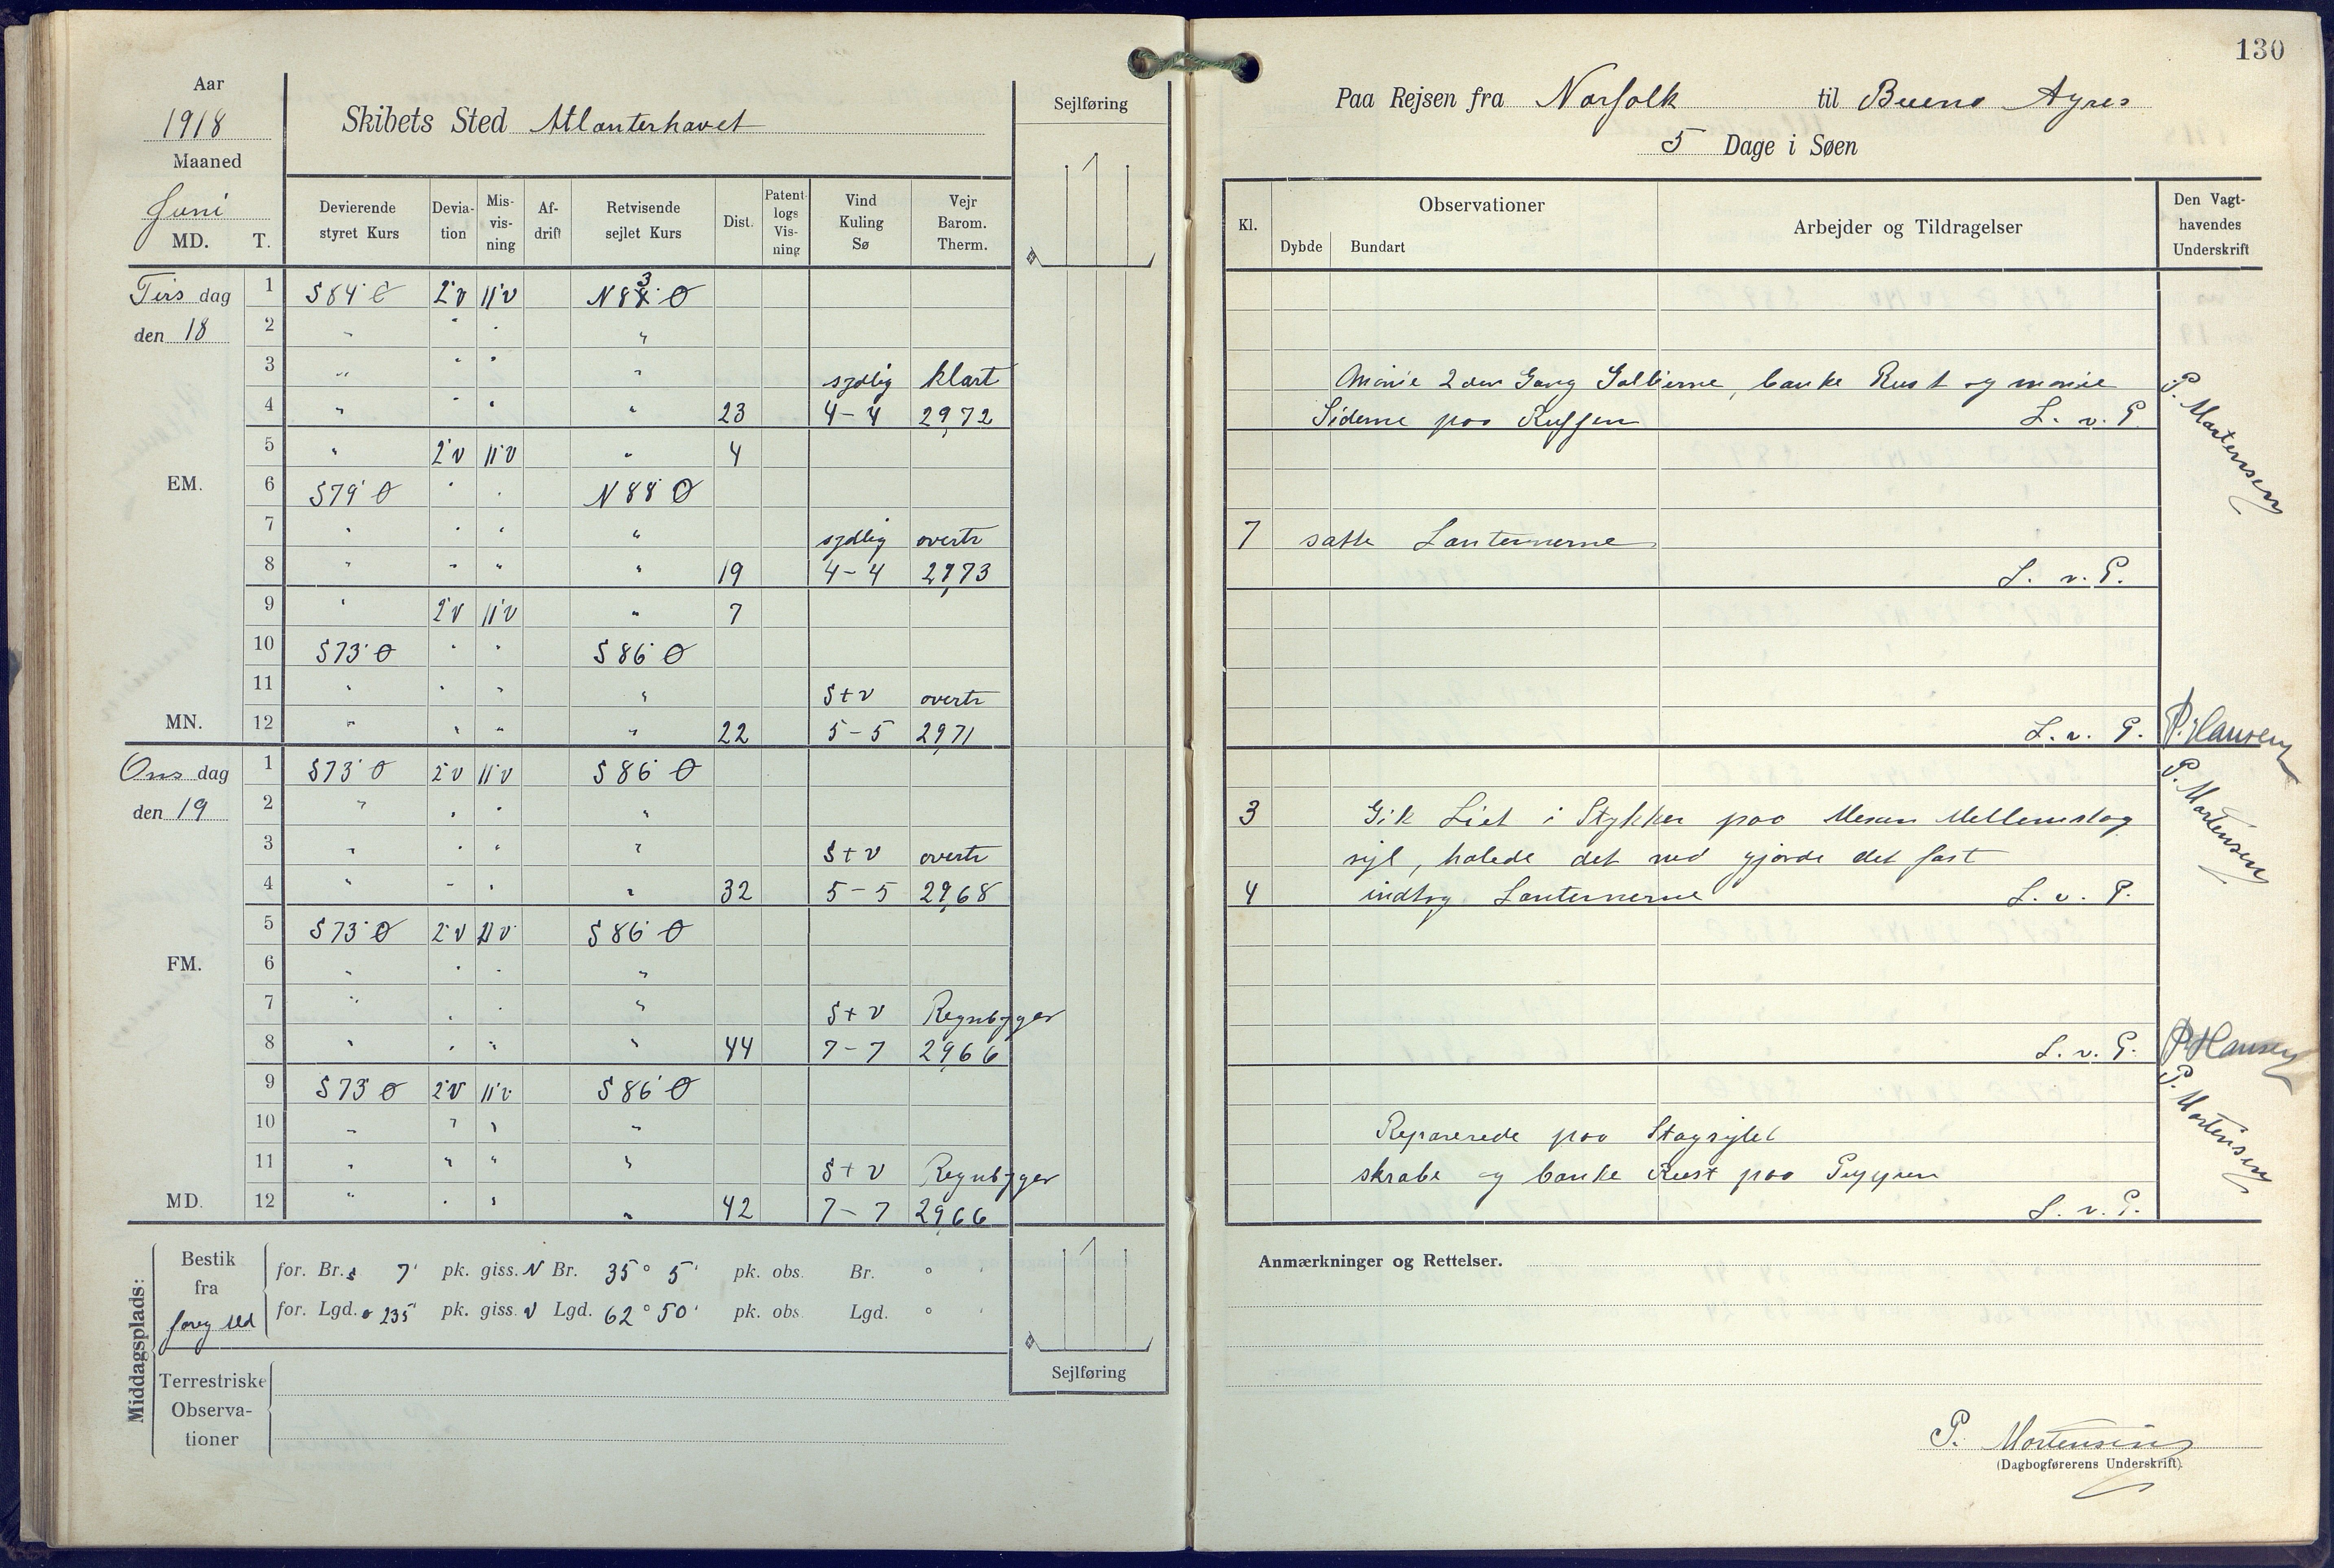 Aar
1918
Maaned
Juni
MD. T.
Skibets Sted Atlanterhavet
Sejlføring
Devierende styret Kurs | Devia-tion | Mis-vis-ning | Af-drift | Retvisende sejlet Kurs | Dist. | Patent-logs Vis-ning | Vind Kuling Sø | Vejr Barom. Therm.
Tirsdag 1 S 84° Ø 2° V 11° V N 83° Ø
den 18 2 " " " "
3 " " " " sydlig klart
4 " " " " 23 4-4 29,72
5 " 2° V 11° V " 4
EM. 6 S 79° Ø " " N 88° Ø
7 " " " " sydlig overtr
8 " " " " 19 4-4 29,73
9 " 2° V 11° V " 7
10 S 73° Ø " " S 86° Ø
11 " " " " S t V overtr
MN. 12 " " " " 22 5-5 29,71
Onsdag 1 S 73° Ø 2° V 11° V S 86° Ø
den 19 2 " " " "
3 " " " " S t V overtr
4 " " " " 32 5-5 29,68
5 S 73° Ø 2° V 11° V S 86° Ø
FM. 6 " " " "
7 " " " " S t V Regnbyger
8 " " " " 44 7-7 29,66
9 S 73° Ø 2° V 11° V S 86° Ø
10 " " " "
11 " " " " S t V Regnbyger
MD. 12 " " " " 42 7-7 29,66
Middagsplads:
Bestik fra foreg Md
for. Br. S 7' pk. giss. N Br. 35° 5' pk. obs. Br. ° '
for. Lgd. Ø 235' pk. giss. V Lgd. 62° 50' pk. obs. Lgd. ° '
Terrestriske
Observa-
tioner
Sejlføring
130
Paa Rejsen fra Norfolk til Bueno Ayres
5 Dage i Søen
Kl. | Observationer | Dybde | Bundart | Arbejder og Tildragelser | Den Vagt-havendes Underskrift
Mønie 2den Gang Galgerne, banke Rust og mønie
Siderne paa Ruffen L. v. P.
P. Mortensen
7 satte Lanternerne
L. v. P.
L. v. P. P. Hansen
3 Gik Liet i Stykker paa Mesan Mellemstag
sejl, halede det ned gjorde det fast
4 indtog Lanternerne L. v. P.
P. Mortensen
L. v. P. P. Hansen
Reparerede paa Stagsejlet
skrabe og banke Rust paa
L. v. P.
P. Mortensen
Anmærkninger og Rettelser.
P. Mortensen
(Dagbogførerens Underskrift).